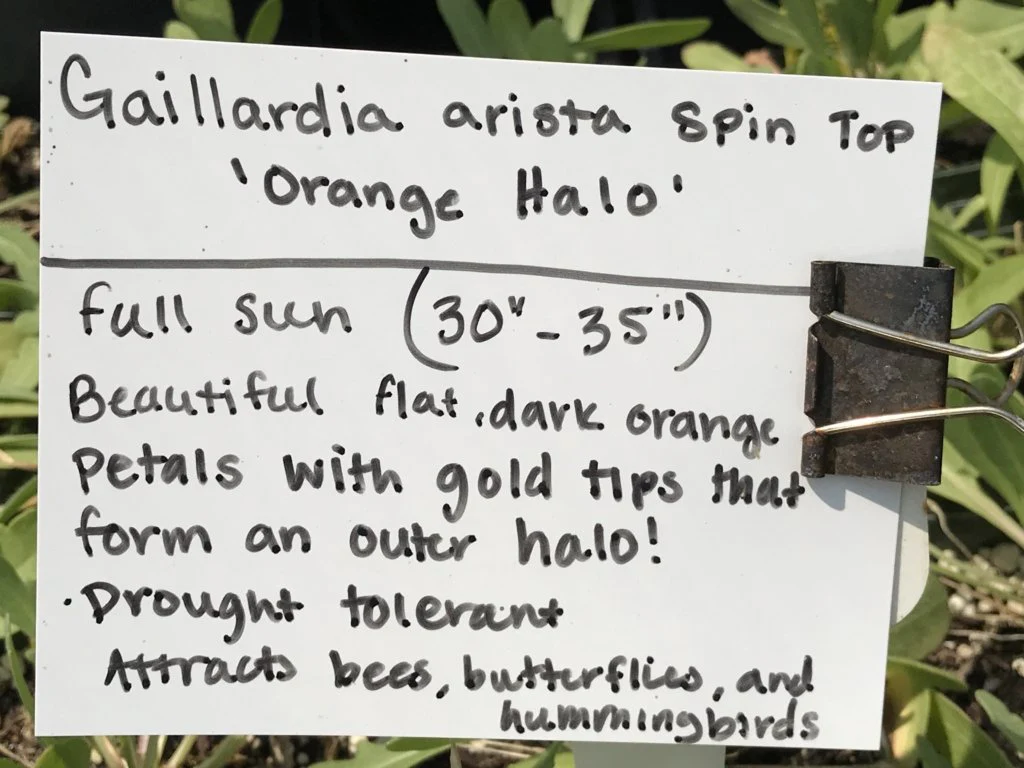 Gaillardia arista Spin Top
'Orange Halo'
full sun (30" - 35")
Beautiful flat, dark orange
petals with gold tips that
form an outer halo!
· Drought tolerant
Attracts bees, butterflies, and
hummingbirds